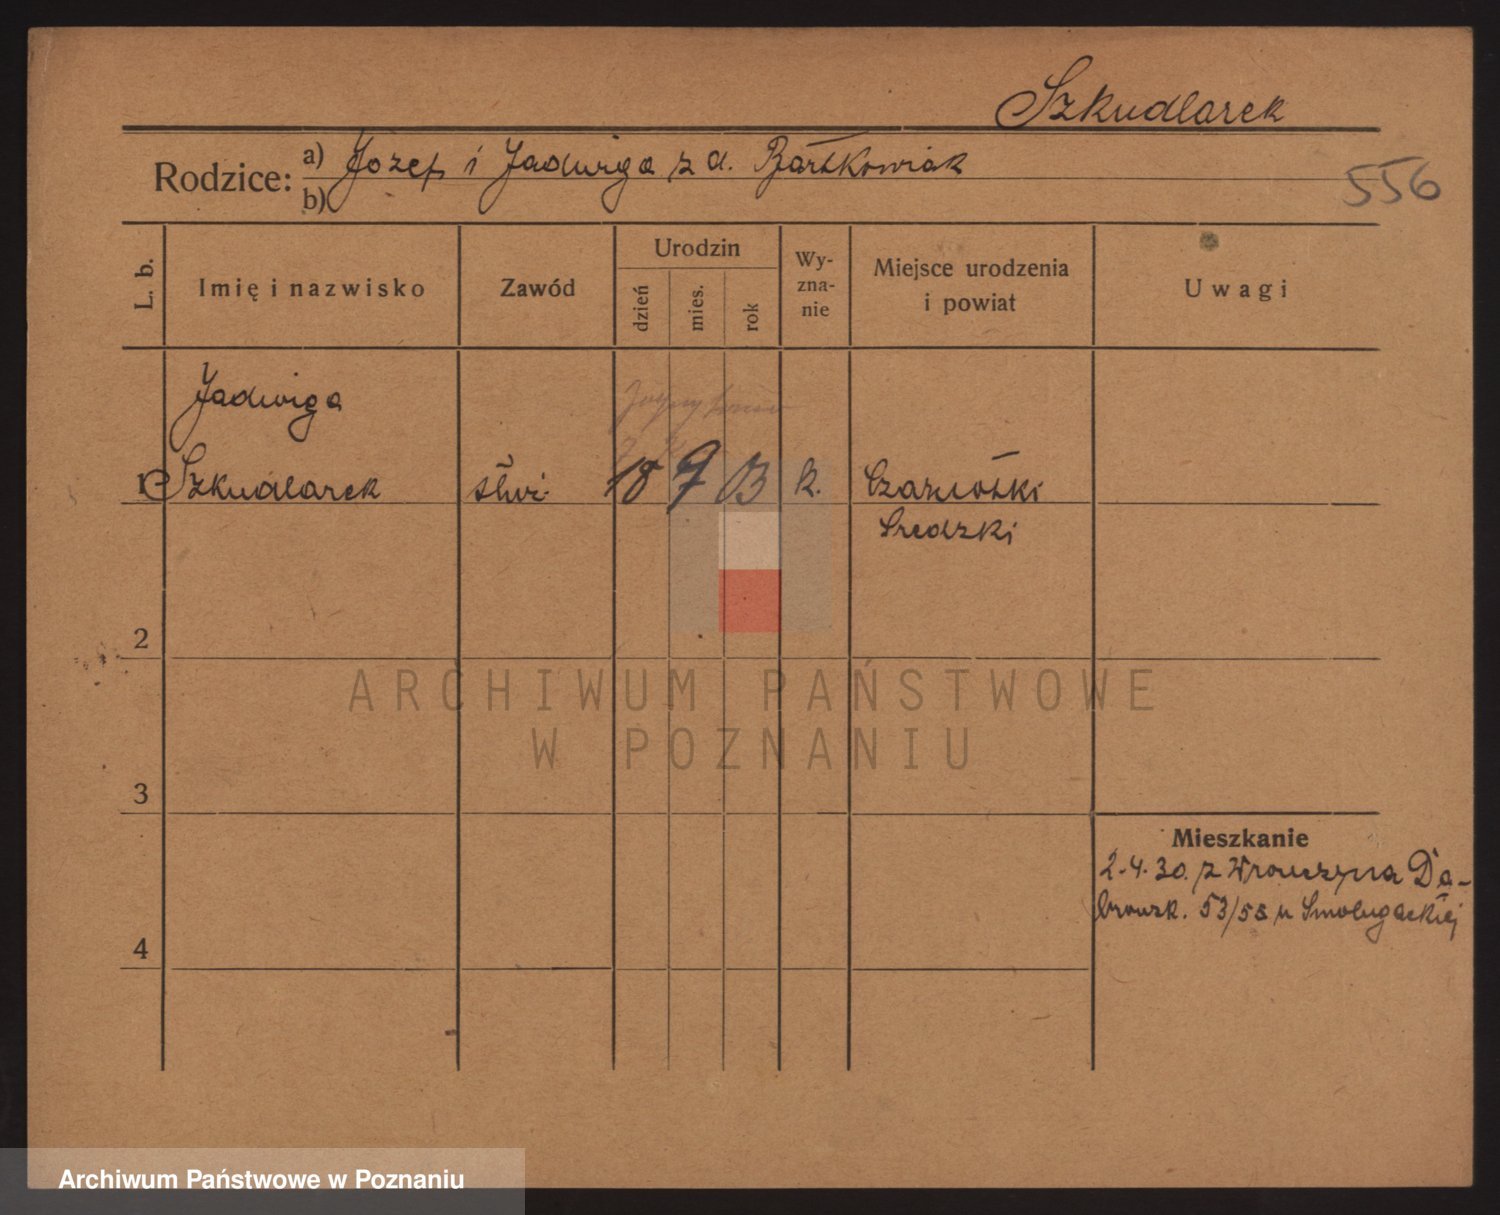 Szkudlarek
Rodzice: a) Józef i Jadwiga z d. Bartkowiak
b)
556
L. b.
Imię i nazwisko
Zawód
Urodzin
dzień
mies.
rok
Wy-
zna-
nie
Miejsce urodzenia
i powiat
Uwagi
Jadwiga
1 Szkudlarek
służ.
18 7 03
k.
Czarnotki
Średzki
2
3
4
Mieszkanie
2.4.30. z Wronczyna Dą-
browsk. 53/55 u Smoługackiej
ARCHIWUM PAŃSTWOWE
W POZNANIU
Archiwum Państwowe w Poznaniu